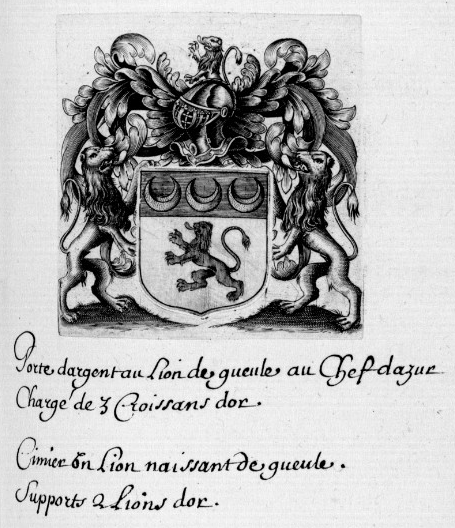 Porte dargent au Lion de gueule au Chef dazur
Chargé de 3 Croissans dor.
Cimier Un Lion naissant de gueule.
Supports 2 Lions dor.